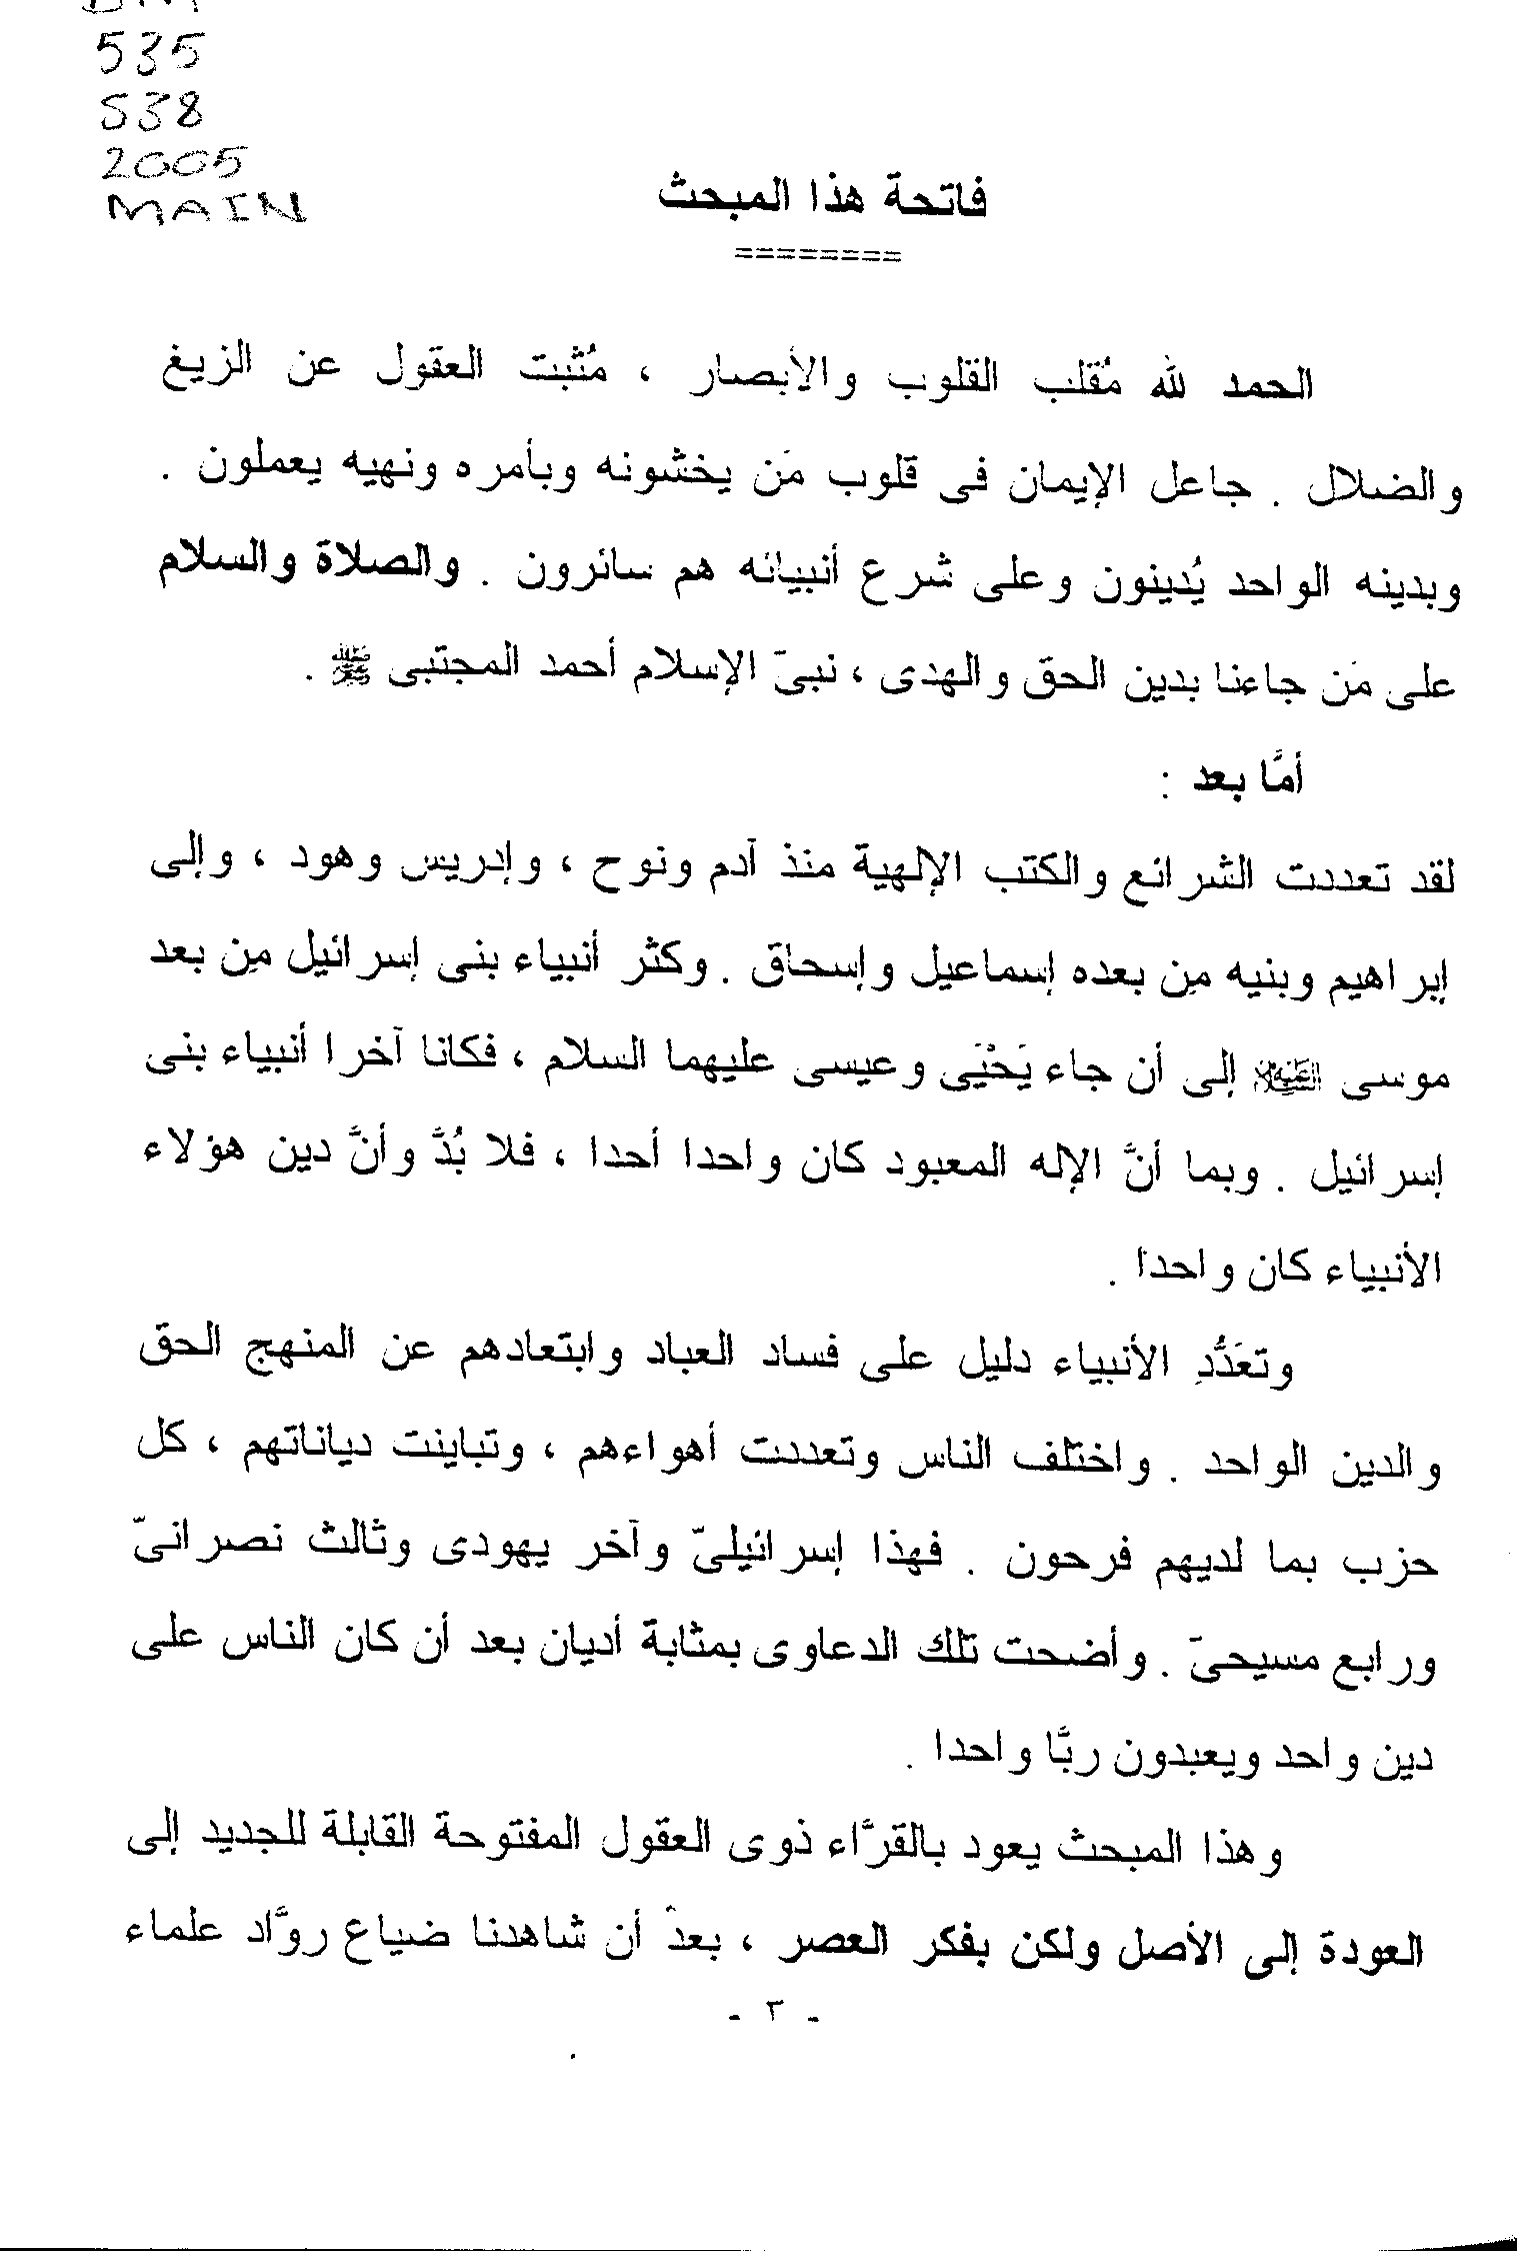 535
538
2005
MAIN
فاتحة هذا المبحث
========
الحمد لله مُقلب القلوب والأبصار ، مُثبت العقول عن الزيغ
والضلال . جاعل الإيمان فى قلوب مَن يخشونه وبأمره ونهيه يعملون .
وبدينه الواحد يُدينون وعلى شرع أنبيائه هم سائرون . والصلاة والسلام
على مَن جاءنا بدين الحق والهدى ، نبىّ الإسلام أحمد المجتبى ﷺ .
أمَّا بعد :
لقد تعددت الشرائع والكتب الإلهية منذ آدم ونوح ، وإدريس وهود ، وإلى
إبراهيم وبنيه مِن بعده إسماعيل وإسحاق . وكثر أنبياء بنى إسرائيل مِن بعد
موسى عليه السلام إلى أن جاء يَحْيَى وعيسى عليهما السلام ، فكانا آخرا أنبياء بنى
إسرائيل . وبما أنَّ الإله المعبود كان واحدا أحدا ، فلا بُدَّ وأنَّ دين هؤلاء
الأنبياء كان واحدا .
وتعَدُّدِ الأنبياء دليل على فساد العباد وابتعادهم عن المنهج الحق
والدين الواحد . واختلف الناس وتعددت أهواءهم ، وتباينت دياناتهم ، كل
حزب بما لديهم فرحون . فهذا إسرائيلىّ وآخر يهودى وثالث نصرانىّ
ورابع مسيحىّ . وأضحت تلك الدعاوى بمثابة أديان بعد أن كان الناس على
دين واحد ويعبدون ربًّا واحدا .
وهذا المبحث يعود بالقرَّاء ذوى العقول المفتوحة القابلة للجديد إلى
العودة إلى الأصل ولكن بفكر العصر ، بعد أن شاهدنا ضياع روَّاد علماء
- ٣ -